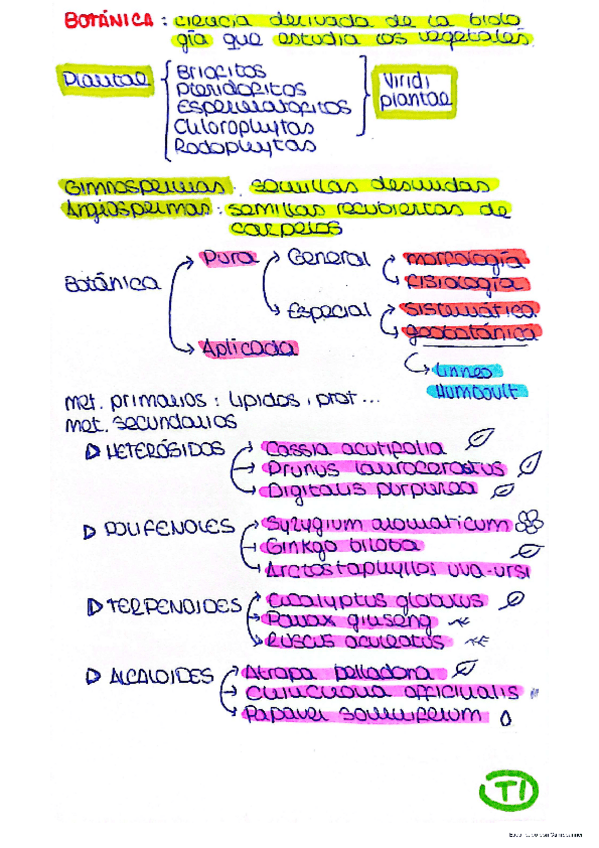 BOTÁNICA: ciencia derivada de la biolo
gía que estudia los vegetales.
Plantae
Briofitos
Pteridofitos
Espermatofitos
Chlorophytas
Rodophytas
Viridi
plantae
Gimnospermas: semillas desnudas
Angiospermas: semillas recubiertas de
carpelos
Botánica
Pura
General
morfología
fisiología
Especial
sistemática
geobotánica
Aplicada
Linneo
Humboult
met. primarios: lípidos, prot...
met. secundarios
HETERÓSIDOS
Cassia acutifolia
Prunus laurocerastus
Digitalis purpurea
POLIFENOLES
Syzygium aromaticum
Ginkgo biloba
Arctostaphyllos uva-ursi
TERPENOIDES
Eucalyptus globulus
Panax ginseng
Ruscus aculeatus
ALCALOIDES
Atropa belladona
Chinchona officinalis
Papaver somniferum
T1